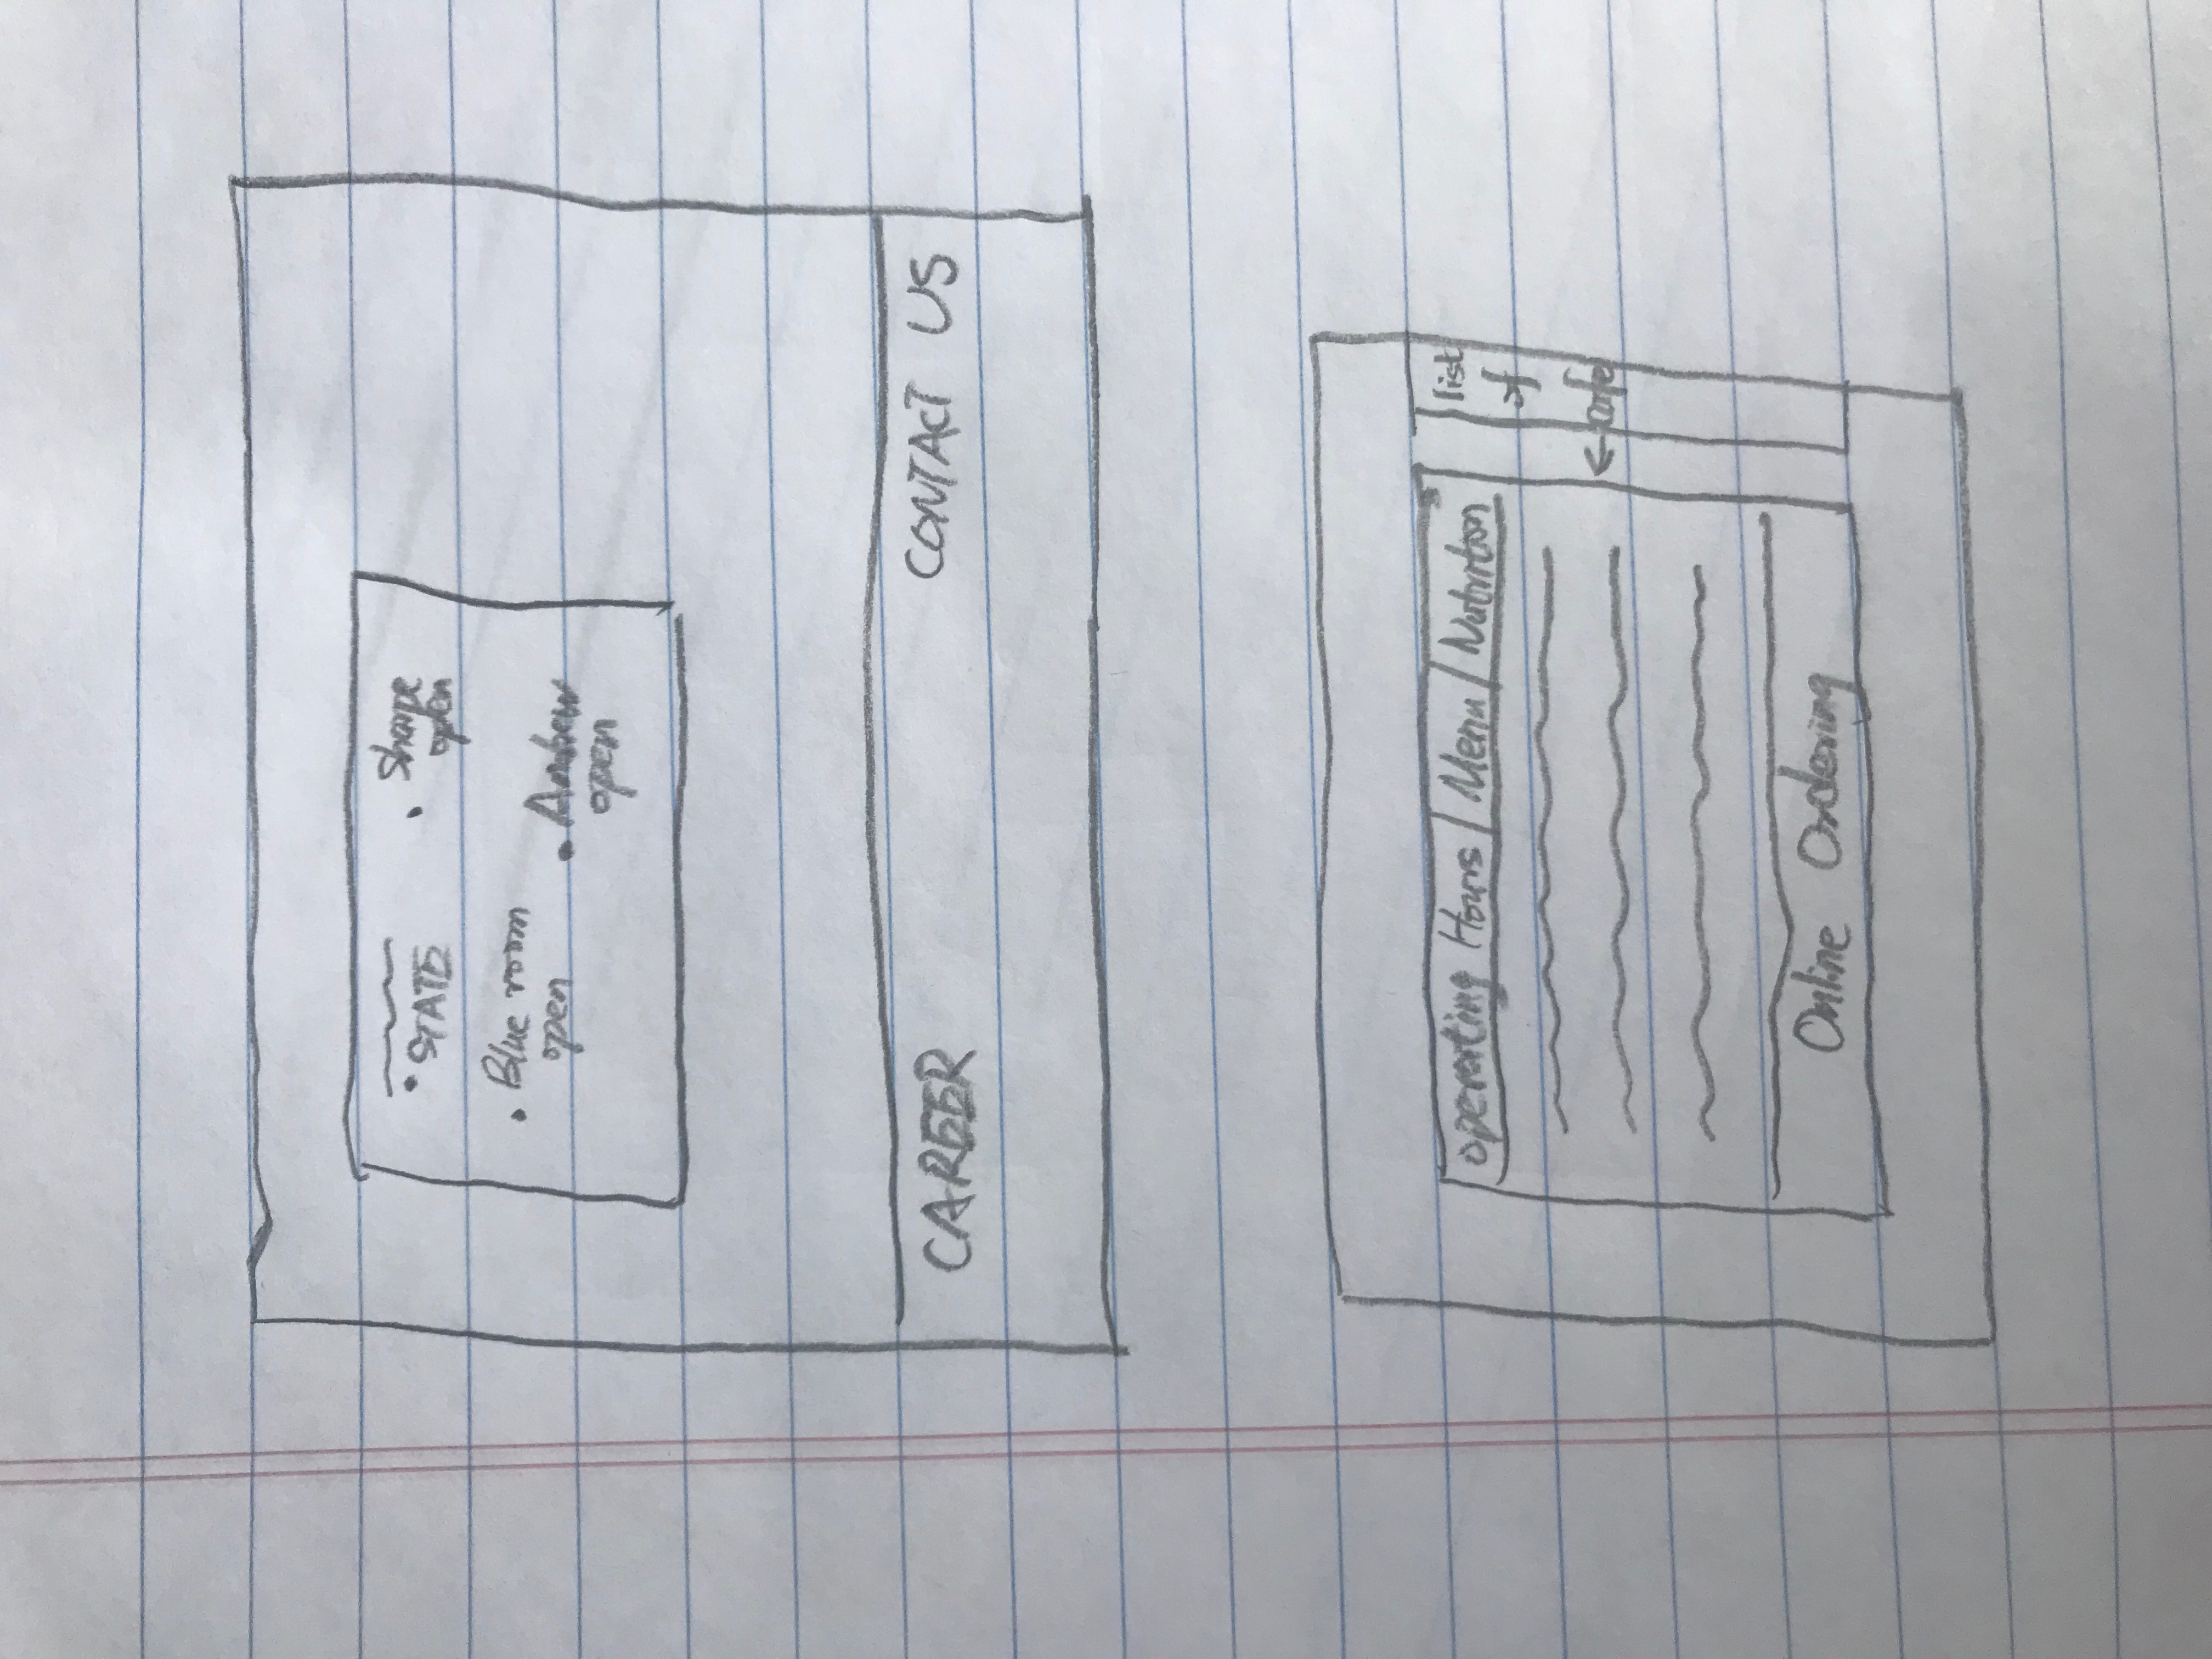 • STATE
• Sharpe
open
• Blue room
open
• Andrew
open
CAREER
CONTACT US
operating Hours | Menu | Nutrition
list
of
← cafe
Online Ordering